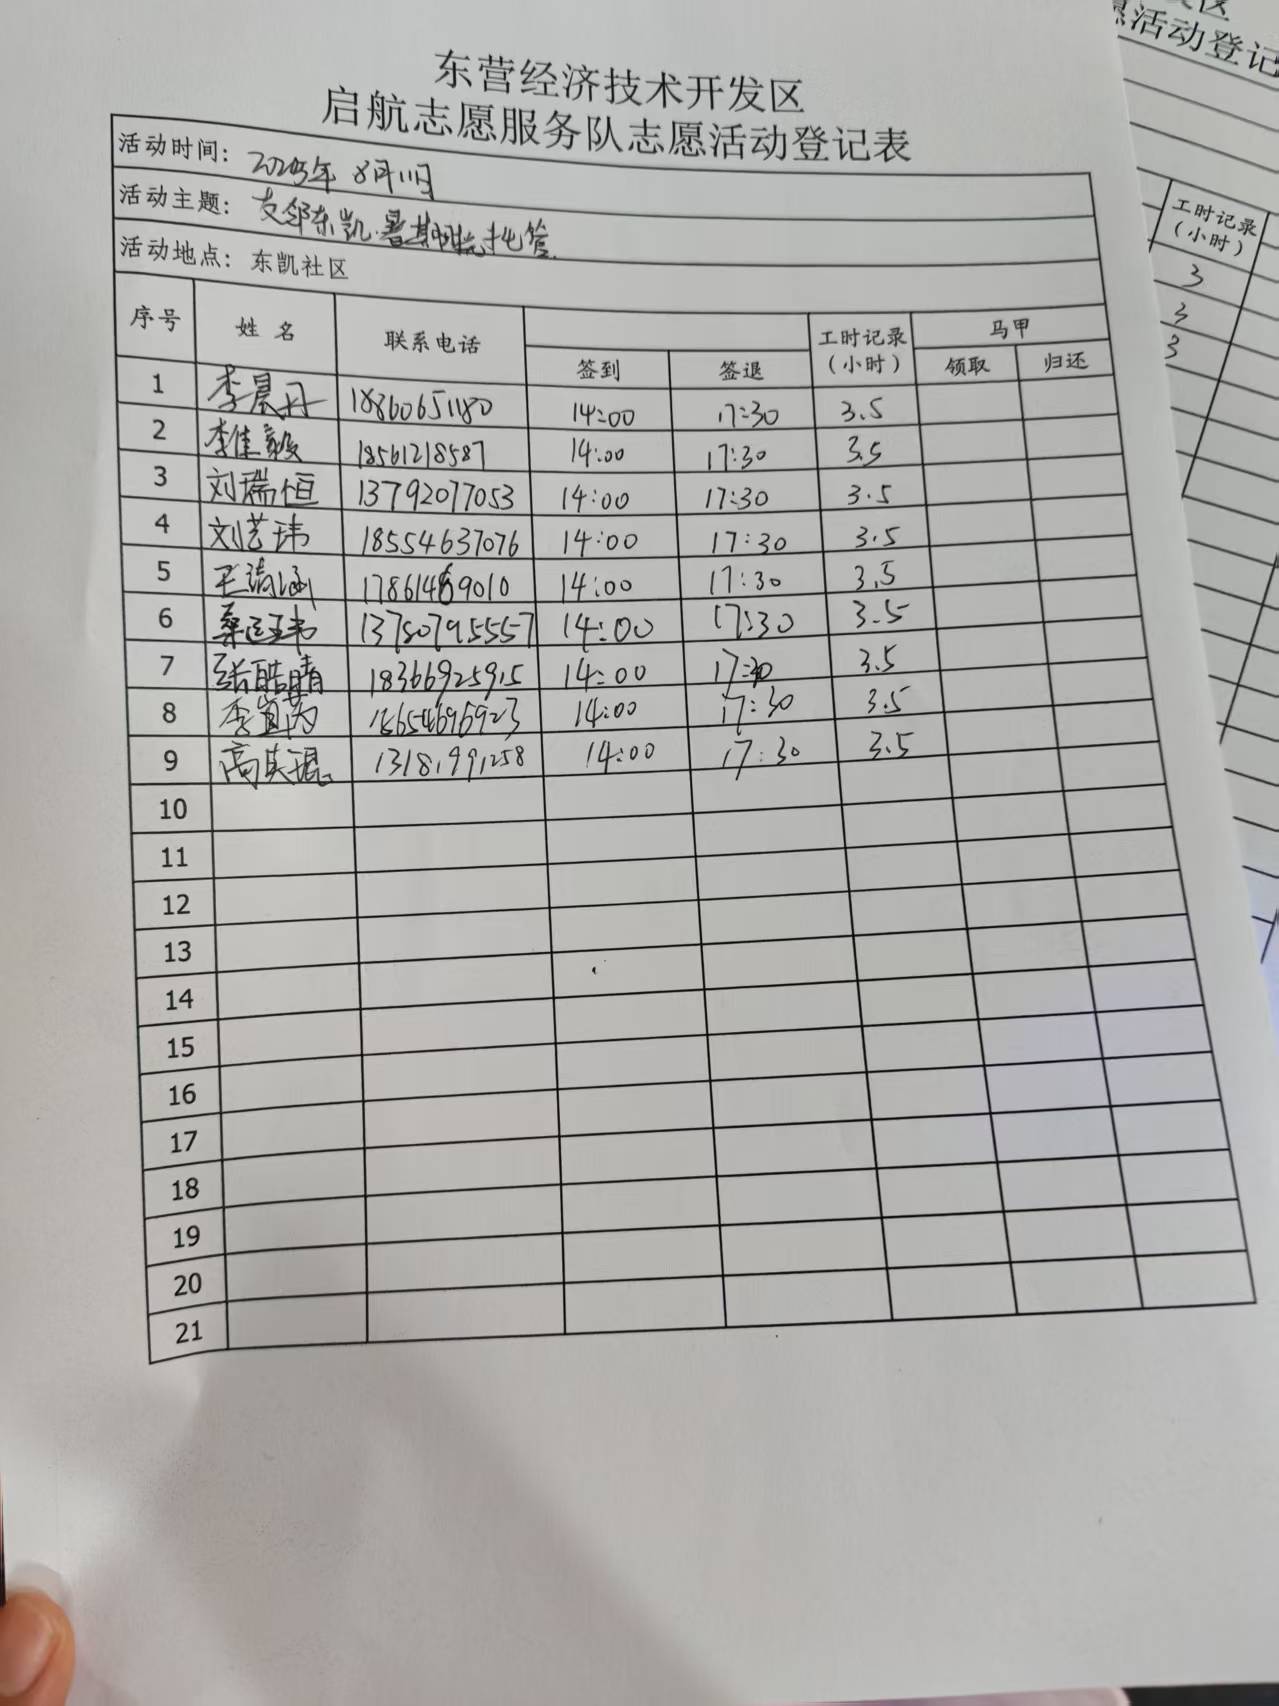 东营经济技术开发区
启航志愿服务队志愿活动登记表
活动时间： 2025年 8月11日
活动主题： 友邻东凯·暑期 托管
活动地点： 东凯社区
序号 姓 名 联系电话 签到 签退 工时记录（小时） 马甲 领取 归还
1 李晨丹 18860651180 14:00 17:30 3.5
2 李佳毅 18561218587 14:00 17:30 3.5
3 刘瑞恒 13792077053 14:00 17:30 3.5
4 刘艺玮 18554637076 14:00 17:30 3.5
5 王清涵 17861469010 14:00 17:30 3.5
6 桑 玮 13780795557 14:00 17:30 3.5
7 张皓晴 18366925915 14:00 17:30 3.5
8 李宜芮 18654696923 14:00 17:30 3.5
9 高英琨 13181991258 14:00 17:30 3.5
10
11
12
13
14
15
16
17
18
19
20
21
区
愿活动登记
工时记录
（小时）
3
3
3